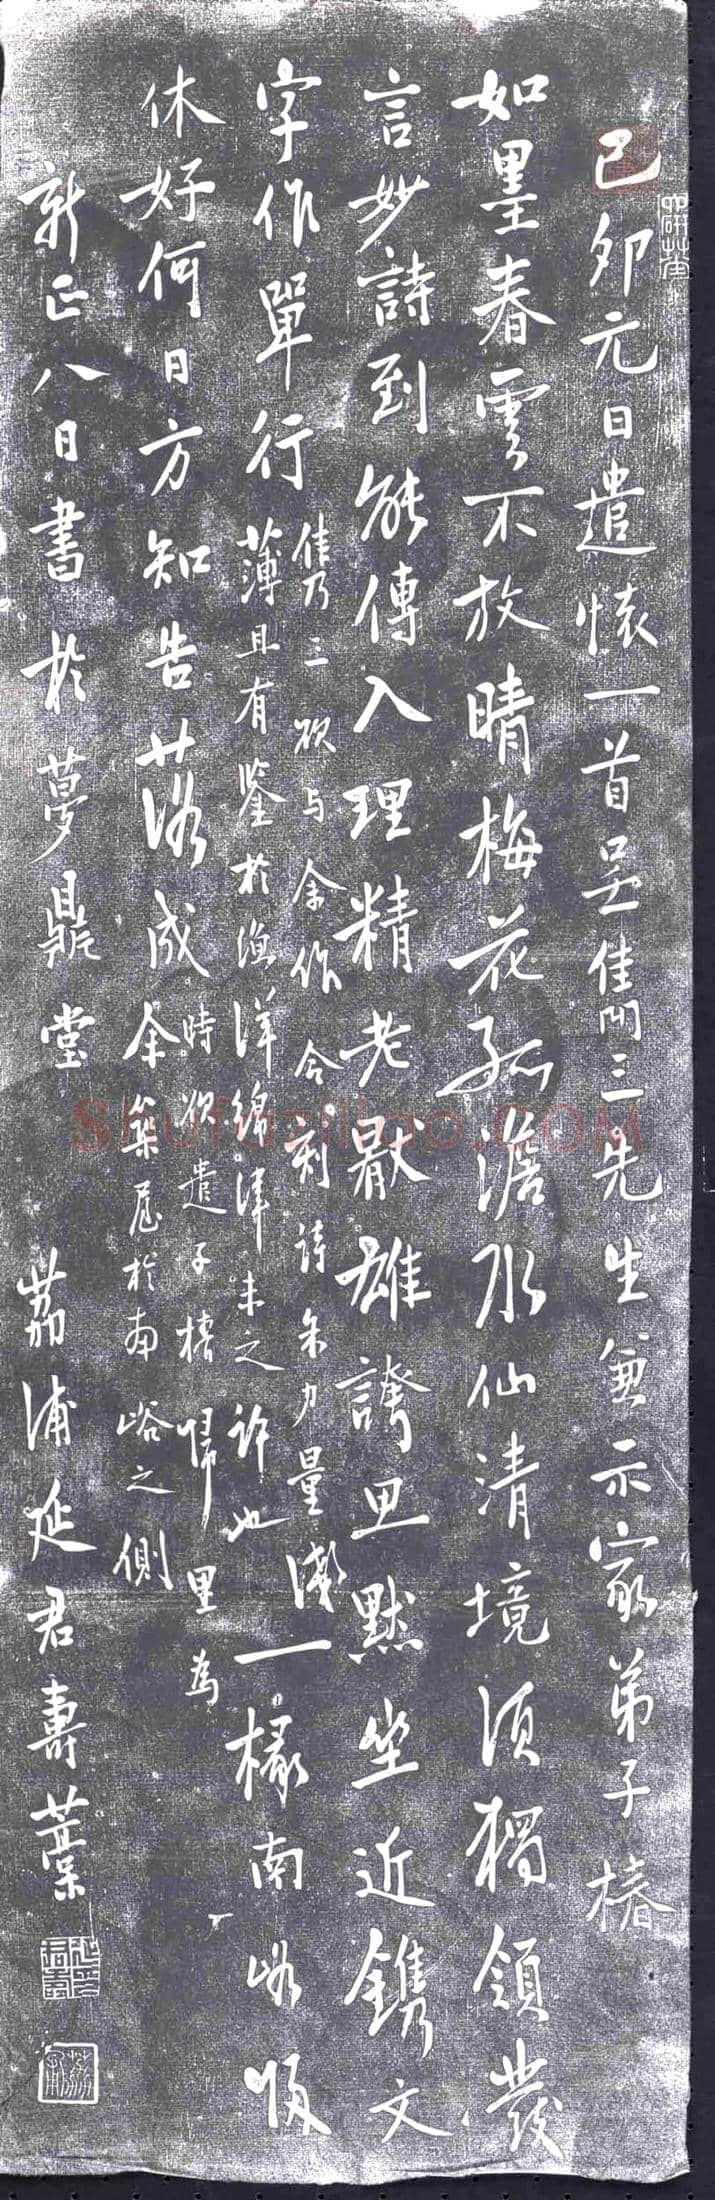 己卯元日遣懷一首呈雋三先生兼示家弟子椿
如墨春雲不放晴梅花孤澹水仙清境須獨領發
言妙詩到能傳入理精老厭雄誇思默坐近鐫文
字作單行
雋三欲與余作合刻詩余力量淺
薄且有鑒於漁洋綿津未之許也
一椽南峪收
休好何日方知告落成
時欲遣子椿歸里為
余築屋於南峪之側
新正八日書於夢鼎堂 荔浦延君壽藁
Shufaziliao.COM